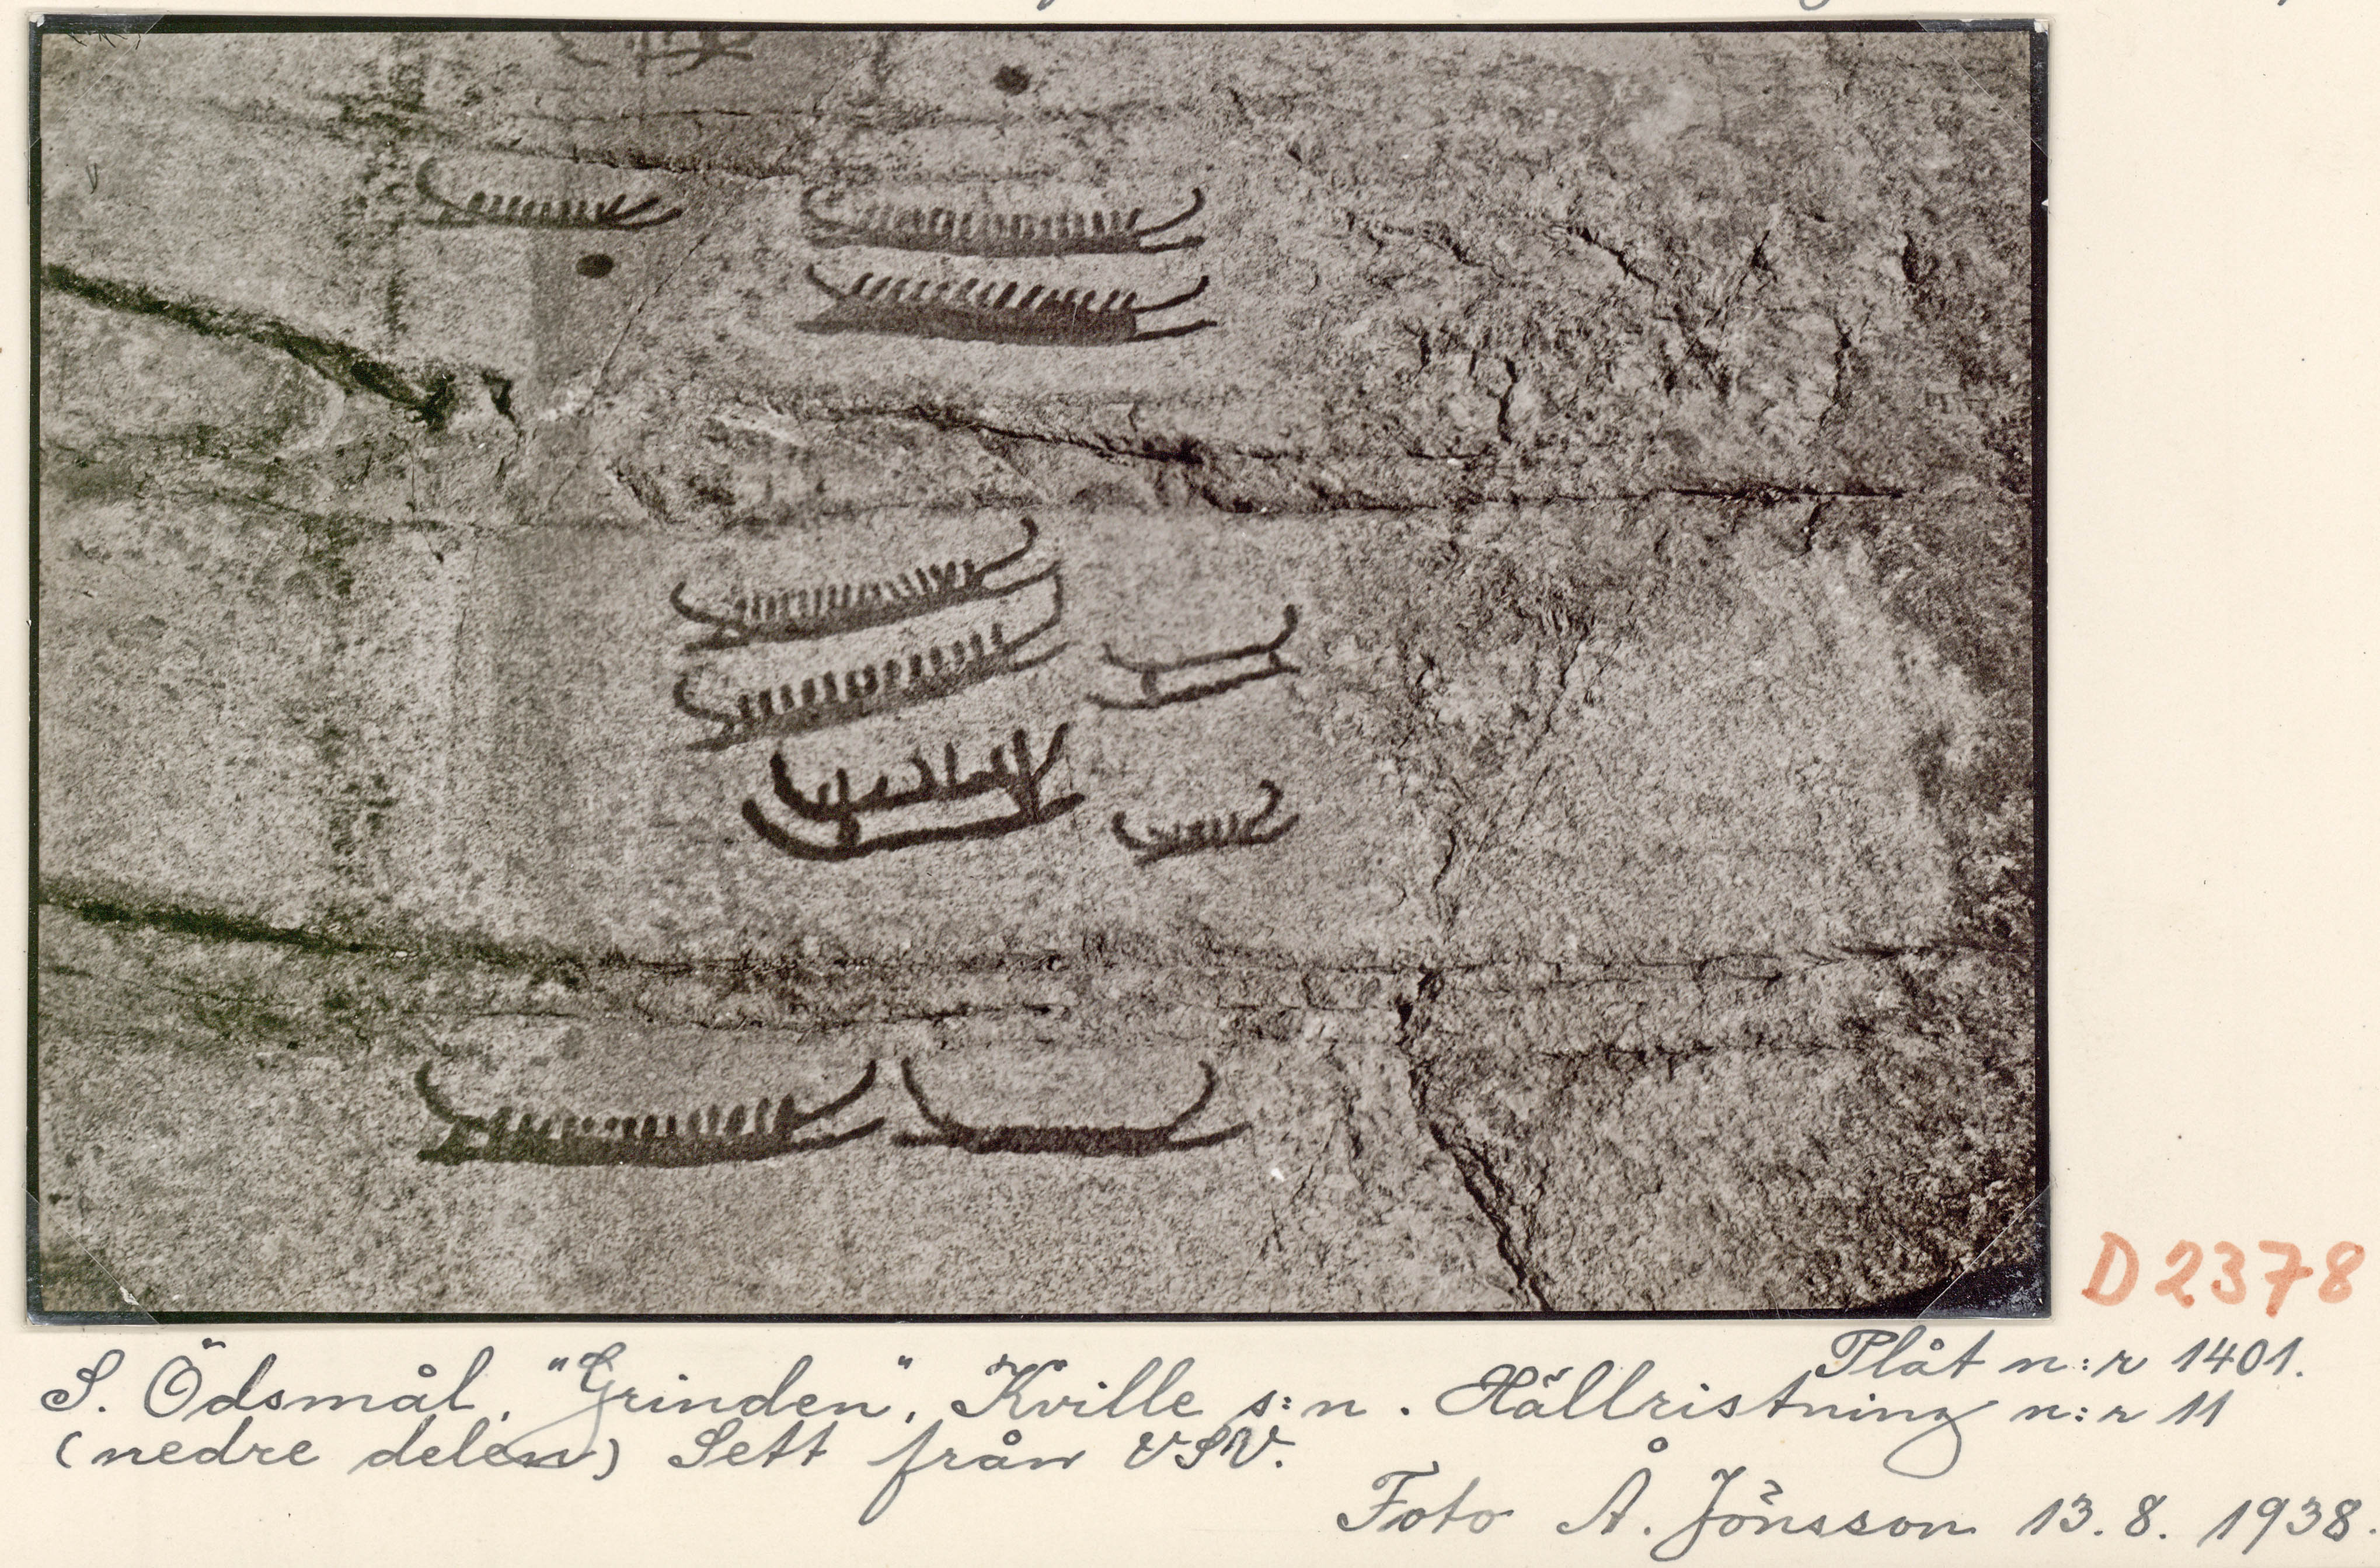 D2378
Plåt n:r 1401.
S. Ödsmål, "Grinden", Kville s:n. Hällristning n:r 11
(nedre delen) Sett från VSV.
Foto Å. Jönsson 13.8.1938.